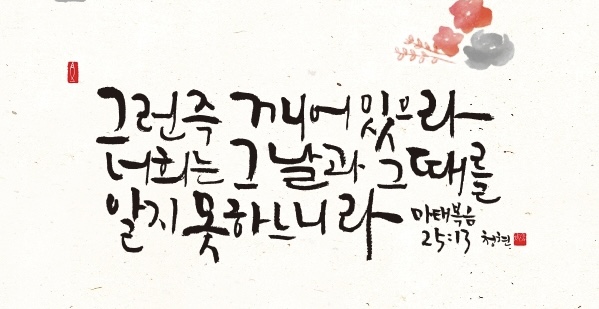 그런즉 깨어 있으라
너희는 그 날과 그 때를
알지 못하느니라
마태복음
25:13 청현